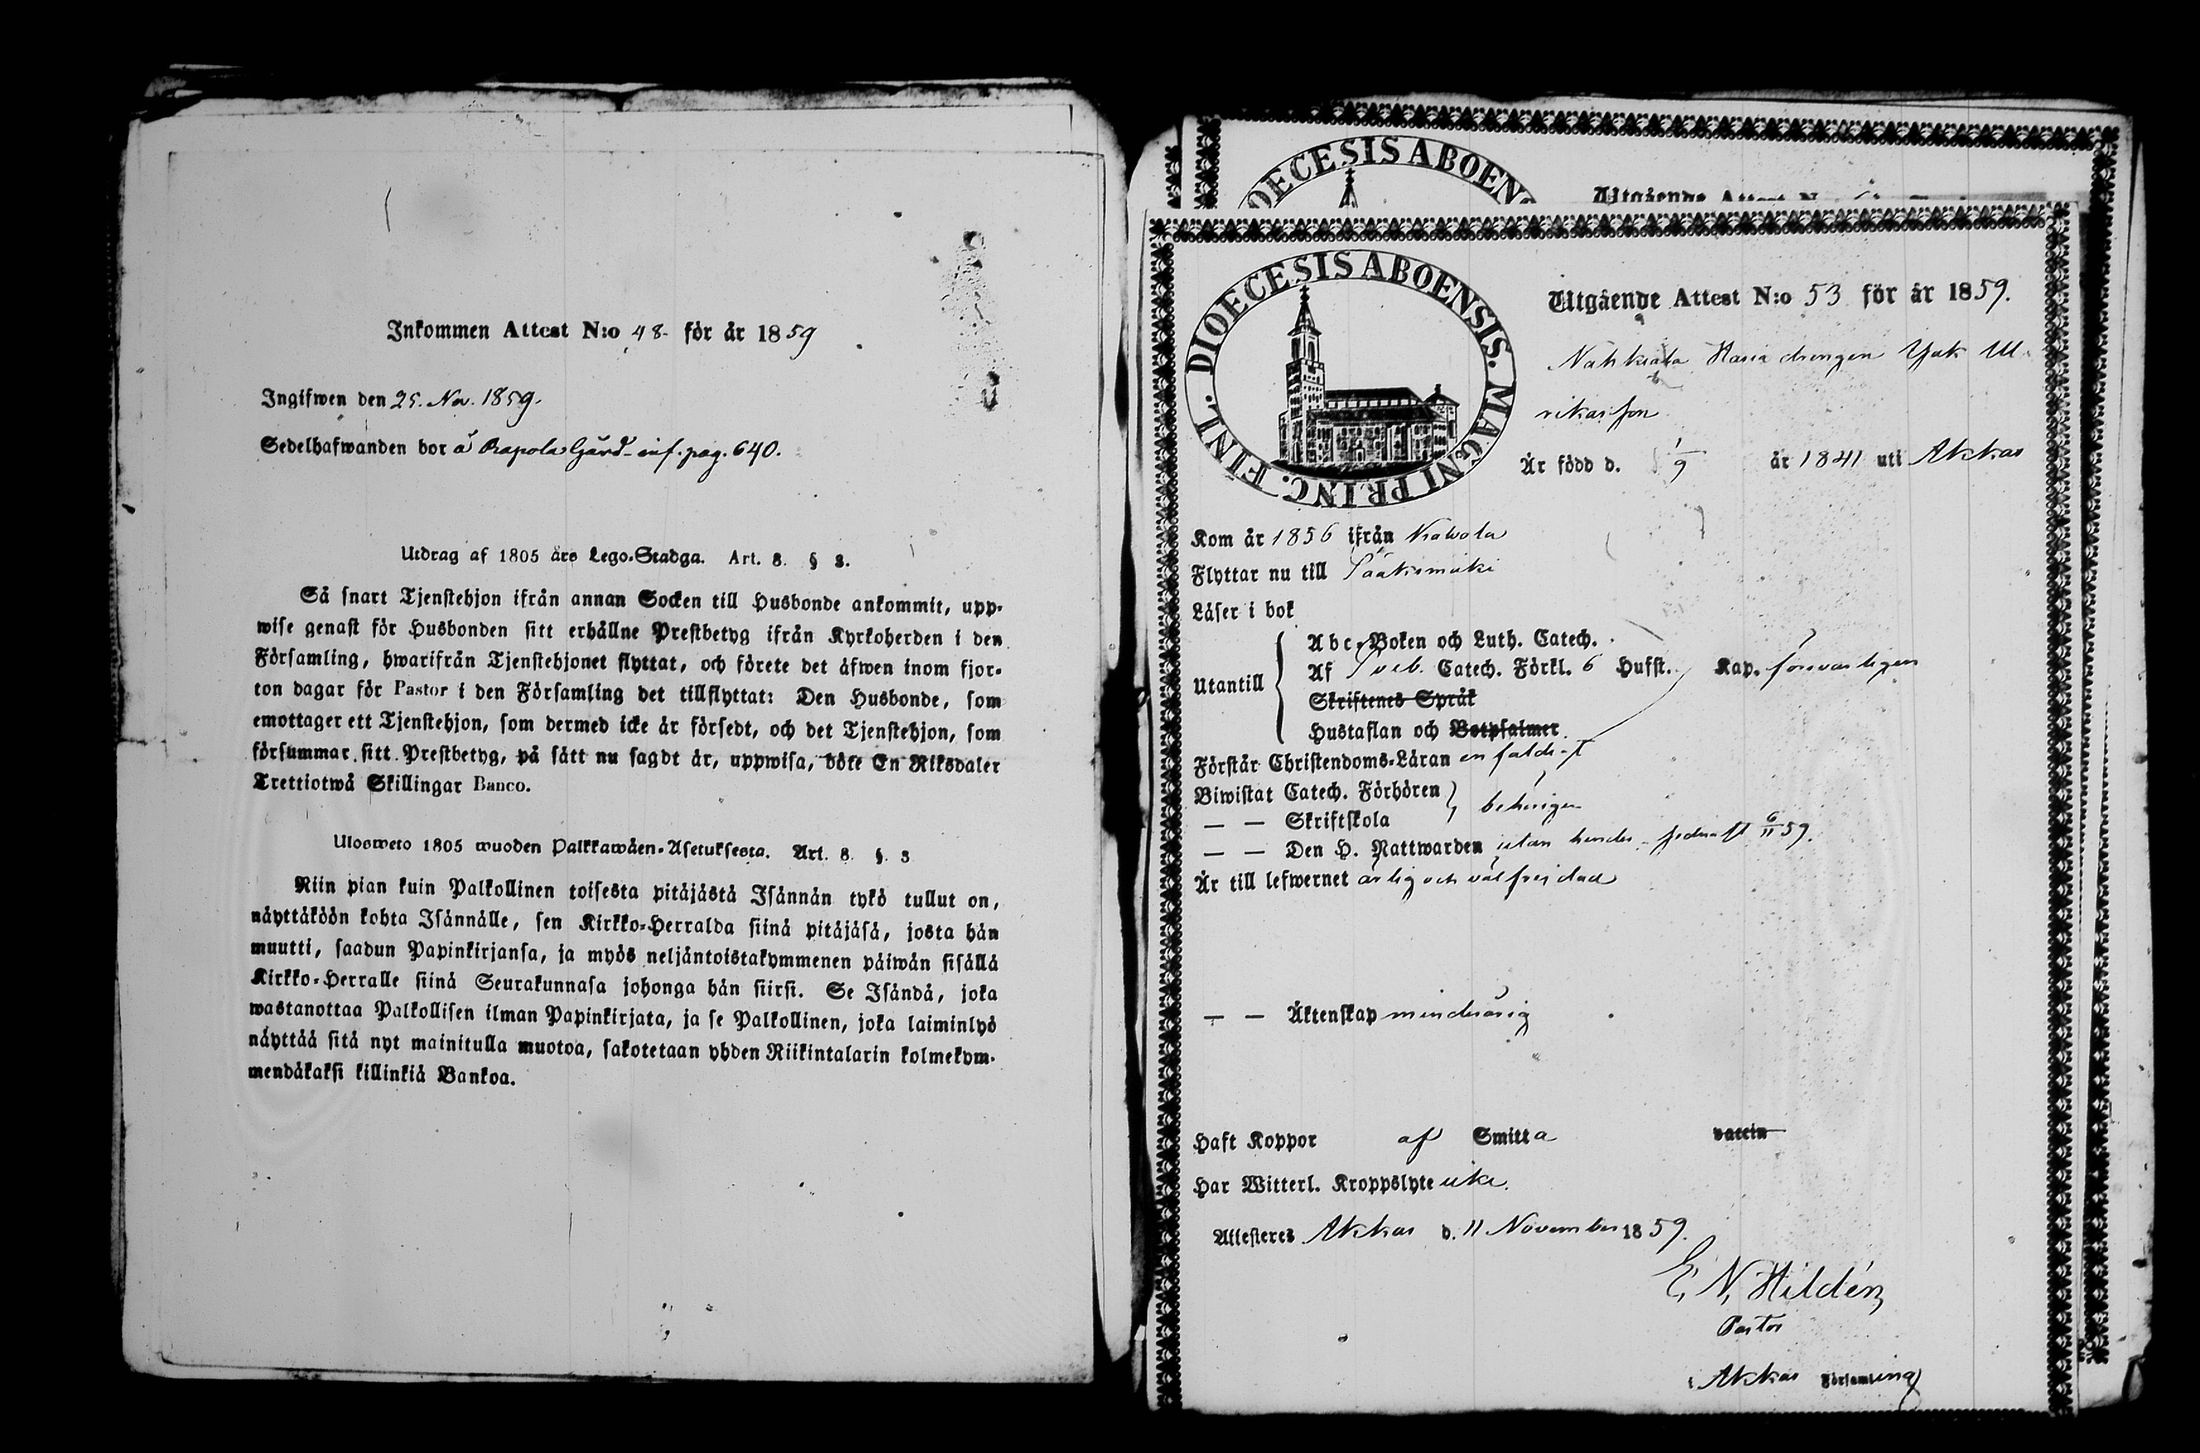 Inkommen Attest N:o 48 för år 1859
Ingifwen den 25. Nov. 1859.
Sedelhafwanden bor å Rapola Gård inf. pag. 640.
Utdrag af 1805 års Lego-Stadga. Art. 8. § 3.
Så snart Tjenstehjon ifrån annan Socken till Husbonde ankommit, upp-
wise genast för Husbonden sitt erhållne Prestbetyg ifrån Kyrkoherden i den
Församling, hwarifrån Tjenstehjonet flyttat, och förete det äfwen inom fjor-
ton dagar för Pastor i den Församling det tillflyttat: Den Husbonde, som
emottager ett Tjenstehjon, som dermed icke är försedt, och det Tjenstehjon, som
försummar sitt Prestbetyg, på sätt nu sagdt är, uppwisa, böte En Riksdaler
Trettiotwå Skillingar Banco.
Ulosweto 1805 wuoden Palkkawäen-Asetuksesta. Art. 8. §. 3
Niin pian kuin Palkollinen toisesta pitäjästä Isännän tykö tullut on,
näyttäköön kohta Isännälle, sen Kirkko-Herralda siinä pitäjäsä, josta hän
muutti, saadun Papinkirjansa, ja myös neljäntoistakymmenen päiwän sisällä
Kirkko-Herralle siinä Seurakunnasa johonga hän siirsi. Se Isändä, joka
wastanottaa Palkollisen ilman Papinkirjata, ja se Palkollinen, joka laiminlyö
näyttää sitä nyt mainitulla muotoa, sakotetaan yhden Riikintalarin kolmekym-
mendäkaksi killinkiä Bankoa.
DIOECESIS ABOENS
Utgående Attest N
DIOECESIS ABOENSIS. MAGNI PRINC. FINL.
Utgående Attest N:o 53 för år 1859.
drengen
rikasson
Är född d. 1/9 år 1841 uti Akkas
Kom år 1856 ifrån
Flyttar nu till Sääksmäki
Läser i bok
Utantill
Abc-Boken och Luth. Catech.
Af Sveb. Catech. Förkl. 6 Hufst. Kap. försvarligen
Skriftenes Språk
Hustaflan och Botpsalmer
Förstår Christendoms-Läran enfaldigt
Biwistat Catech. Förhören behörigen
— — Skriftskola
— — Den H. Nattwarden utan hinder sednast 6/11 59.
Är till lefwernet ärlig och väl frejdad
— — Äktenskap minderårig
Haft Koppor af Smitta vaccin
Har Witterl. Kroppslyte icke
Attesteres Akkas d. 11 November 1859.
E. N. Hildén
Pastor
Akkas Församling